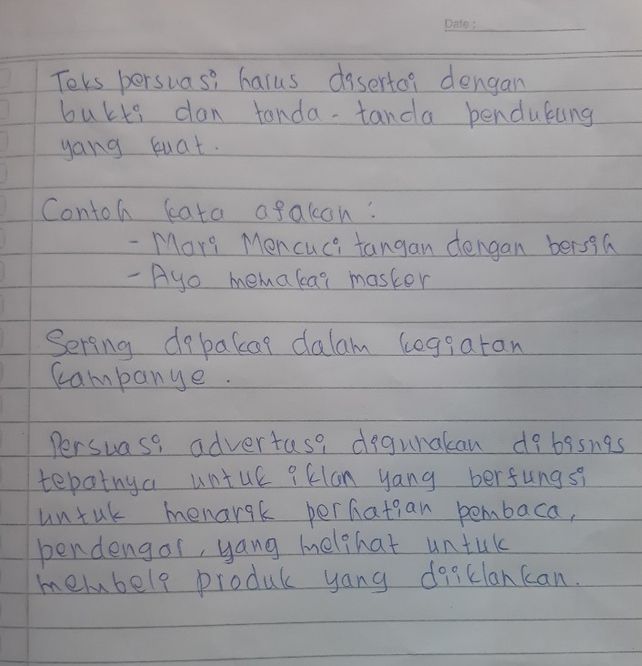 Date:
Teks persuasi harus disertai dengan
bukti dan tanda-tanda pendukung
yang kuat.
Contoh kata ajakan:
- Mari Mencuci tangan dengan bersih
- Ayo memakai masker
Sering dipakai dalam kegiatan
kampanye.
Persuasi advertasi digunakan di bisnis
tepatnya untuk iklan yang berfungsi
untuk menarik perhatian pembaca,
pendengar, yang melihat untuk
membeli produk yang diiklankan.